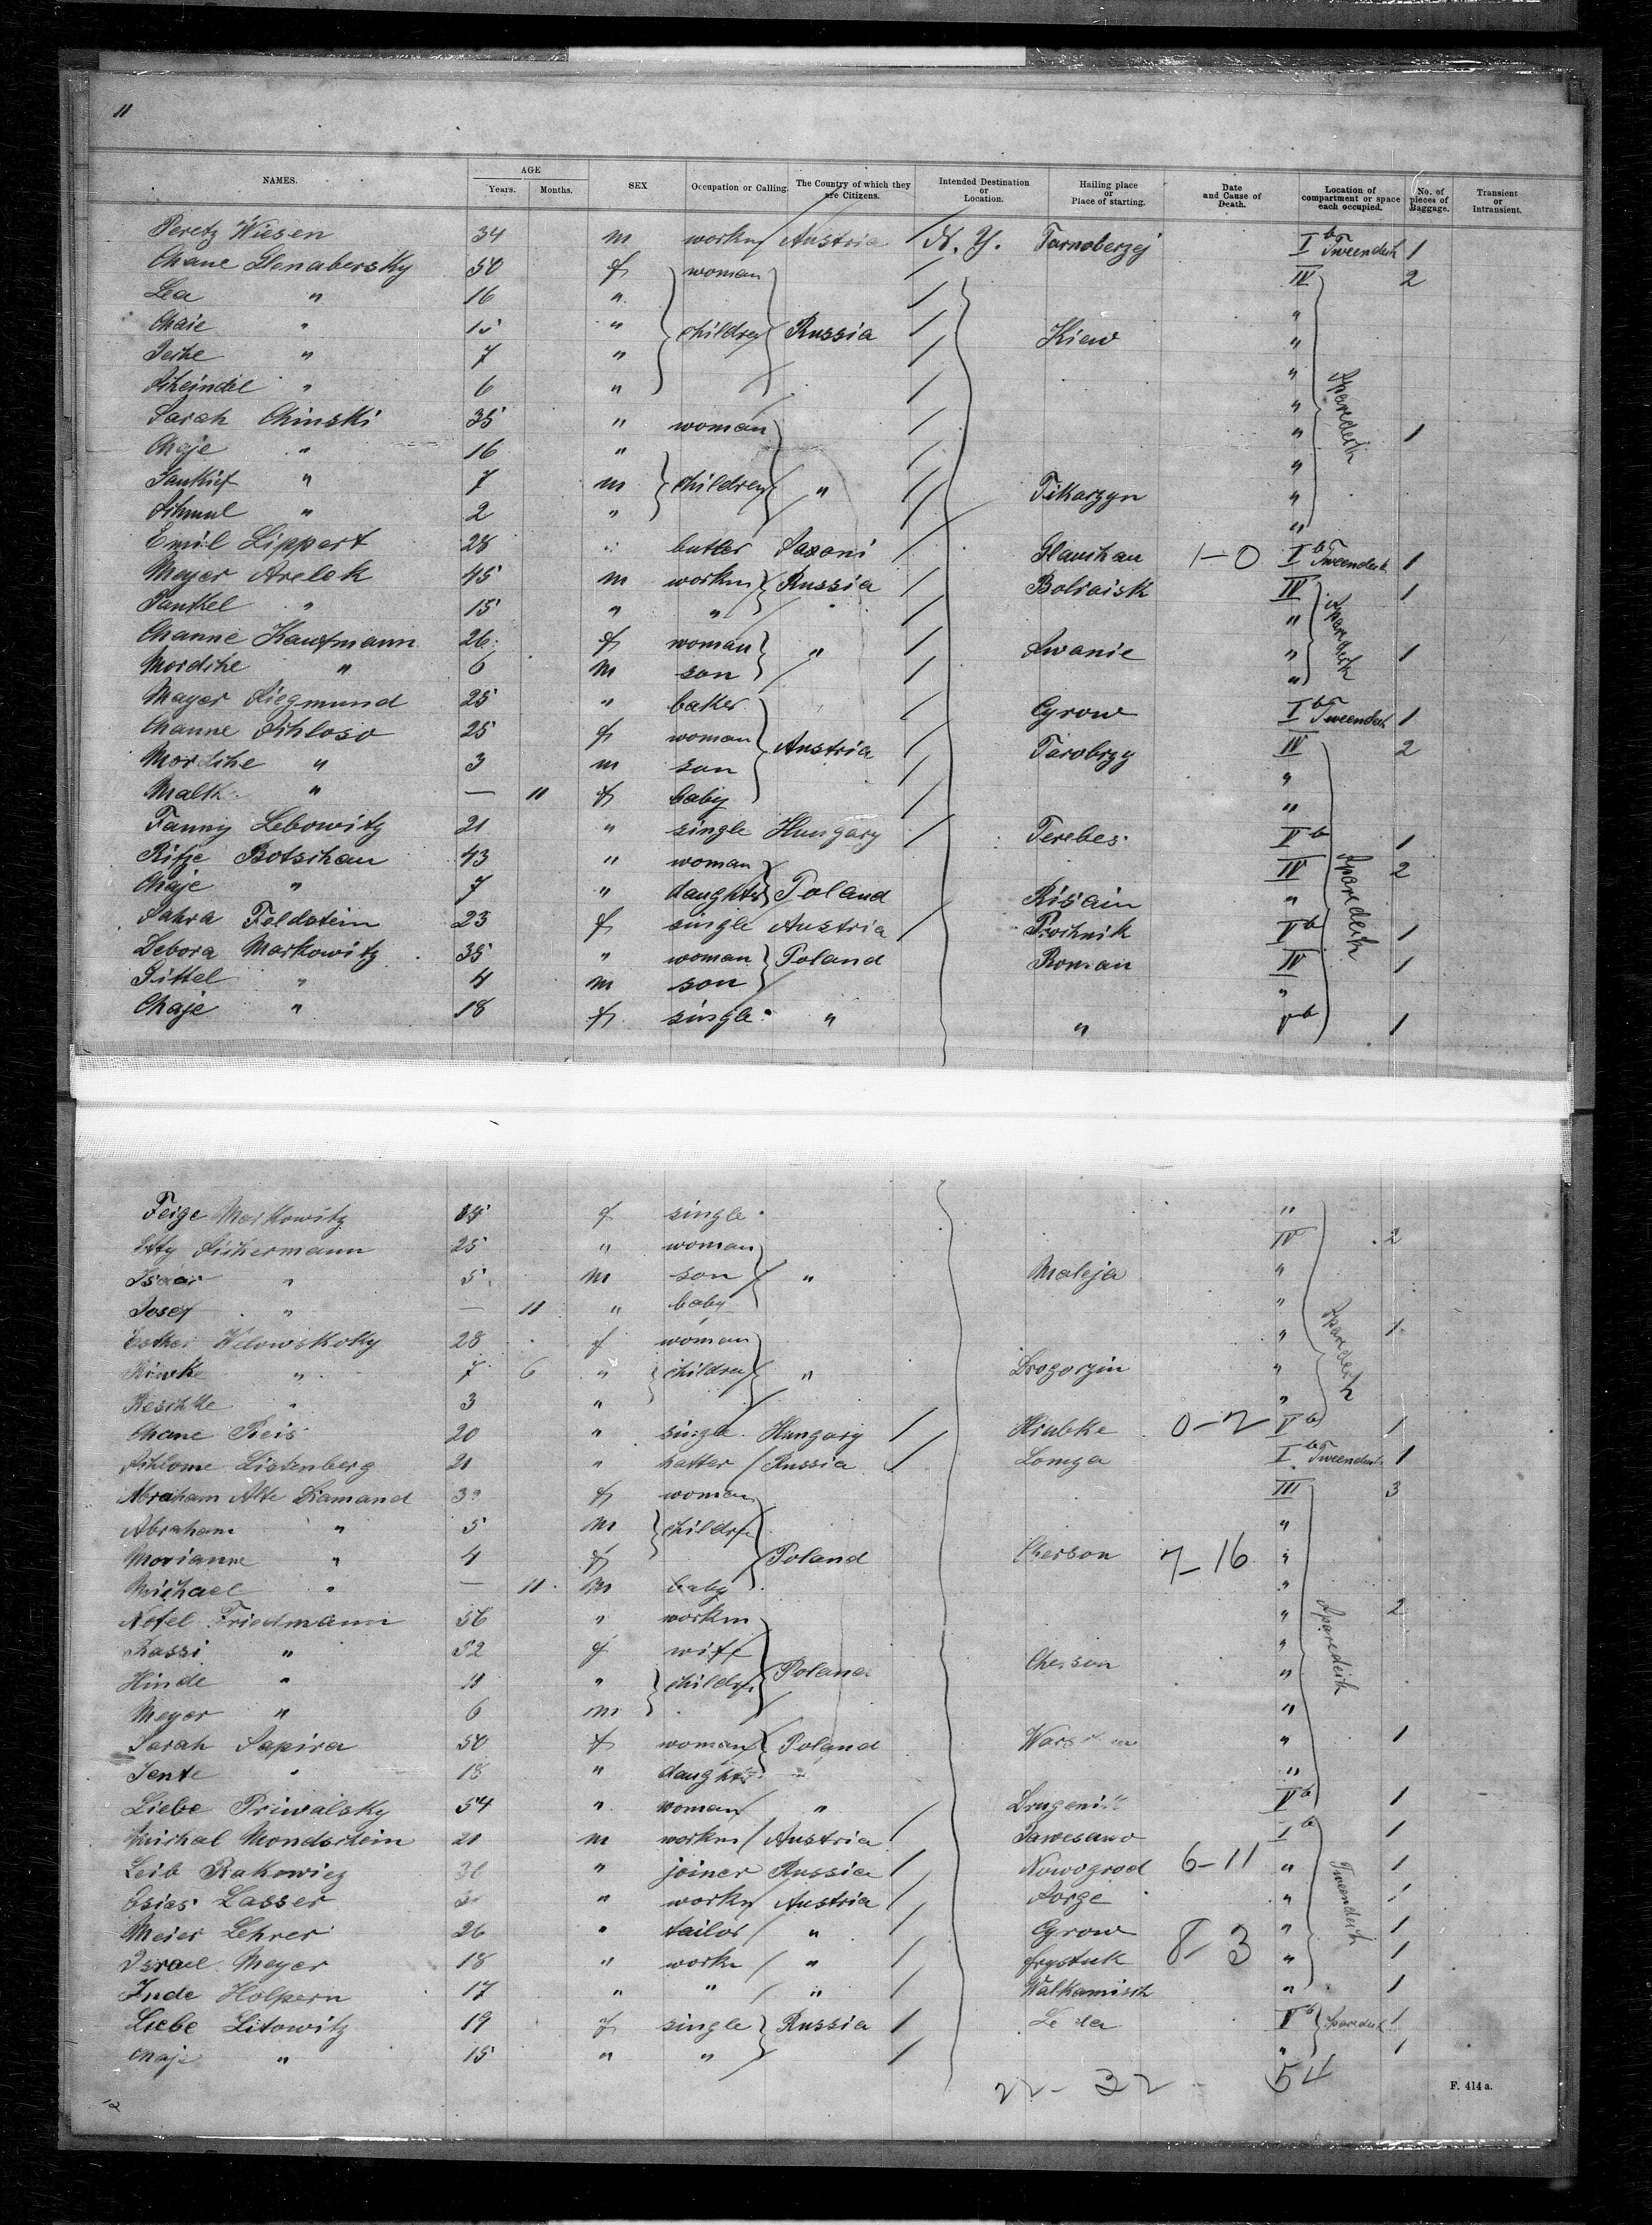 11
NAMES. AGE Years. Months. SEX Occupation or Calling. The Country of which they are Citizens. Intended Destination or Location. Hailing place or Place of starting. Date and Cause of Death. Location of compartment or space each occupied. No. of pieces of Baggage. Transient or Intransient.
Peretz Wiesen 34 m workm Austria N. Y. Tarnoberzej I b Tweendeck 1
Chane 50 f woman IV 2
Lea " 16 " "
Chaie " 15 " children Russia Kiew "
" 7 " "
Scheindel " 6 " "
Sarah Chinski 35 " woman " 1
Chaje " 16 " "
Jankief " 7 m children " Tikarzyn "
Schmul " 2 " "
Emil Lippert 28 " butler Saxoni Glauchau 1-0 I b Tweendeck 1
Meyer Arelek 45 m workm Russia Boliaisk IV 1
Jankel " 15 " " "
Channe Kaufmann 26 f woman " Swanie " 1
Mordche " 6 m son "
Mayer Siegmund 25 " baker Cyrow I b Tweendeck 1
Channe Schloso 25 f woman Austria Tarobrzy IV 2
Mordche " 3 m son "
Malk " — 11 f baby "
Fanny Lebowitz 21 " single Hungary Terebes V b 1
Rifze Botschan 43 " woman IV 2
Chaje " 7 " daughter Poland Risain "
Sahra Feldstein 23 f single Austria Prochnik V b 1
Debora Markowitz 35 " woman Poland Roman IV 1
Sittel " 4 m son "
Chaje " 18 f single " " V b 1
Feige Markowitz f single "
Etty Sichermann 25 " woman IV 2
Isaac " 5 m son " Maleja "
Josef " — 11 " baby "
Esther 28 f woman " 1
Riwke " 7 6 " children " Drogorzin "
Reschke " 3 " "
Chane Reis 20 " single Hungary Hrubke 0-2 V b 1
Schlome Listenberg 21 " hatter Russia Lomza I b Tweendeck 1
Abraham Alte Diamand f woman III 3
Abraham " 5 m children "
Morianne " 4 f Poland Cherson 7-16 "
Michael " — 11 m baby "
Notel Friedmann 56 " workm " 2
Rassi " 52 f wife Cherson "
Hinde " 11 " children Poland "
Meyer " 6 m "
Sarah Sapira 50 f woman Poland " 1
Jente " 18 " daughter " "
Liebe Priwalsky 54 " woman " V b 1
Michal Mondschein 21 m workm Austria Jawesawo I b 1
Leib Rakowicz " joiner Russia Nowogrod 6-11 " 1
Esias Lasser " workm Austria Sorge " 1
Meier Lehrer 26 " tailor " Cyrow " 1
Israel Meyer 18 " workm " frystuk 8-3 " 1
Jude Holpern 17 " " " Walkamisch " 1
Liebe Litowitz 19 f single Russia V b 1
Chaje " 15 " " " 1
22-32 54
12 F. 414 a.